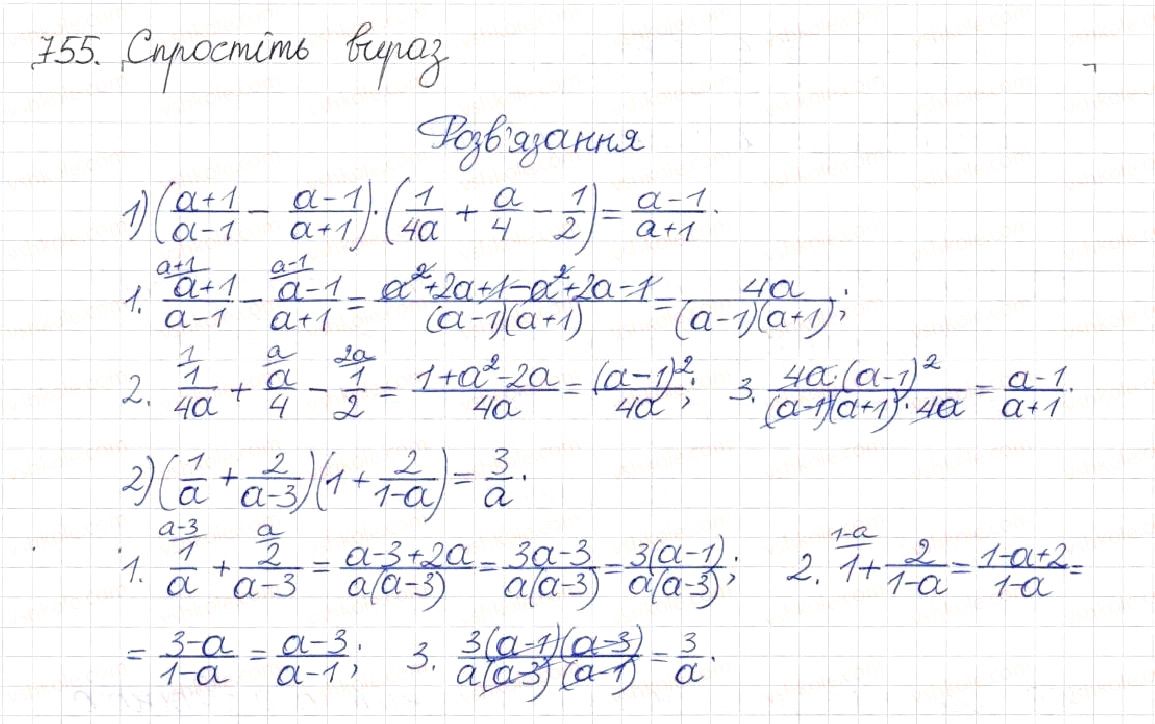 755. Спростіть вираз
Розв'язання
1) ((a+1)/(a-1) - (a-1)/(a+1)) · (1/(4a) + a/4 - 1/2) = (a-1)/(a+1).
1. ^(a+1) (a+1)/(a-1) - ^(a-1) (a-1)/(a+1) = (a²+2a+1-a²+2a-1)/((a-1)(a+1)) = 4a/((a-1)(a+1));
2. ^1 1/(4a) + ^a a/4 - ^(2a) 1/2 = (1+a²-2a)/(4a) = (a-1)²/(4a); 3. (4a·(a-1)²)/((a-1)(a+1)·4a) = (a-1)/(a+1).
2) (1/a + 2/(a-3))(1 + 2/(1-a)) = 3/a.
1. ^(a-3) 1/a + ^a 2/(a-3) = (a-3+2a)/(a(a-3)) = (3a-3)/(a(a-3)) = 3(a-1)/(a(a-3)); 2. ^(1-a) 1 + 2/(1-a) = (1-a+2)/(1-a) =
= (3-a)/(1-a) = (a-3)/(a-1); 3. (3(a-1)(a-3))/(a(a-3)(a-1)) = 3/a.